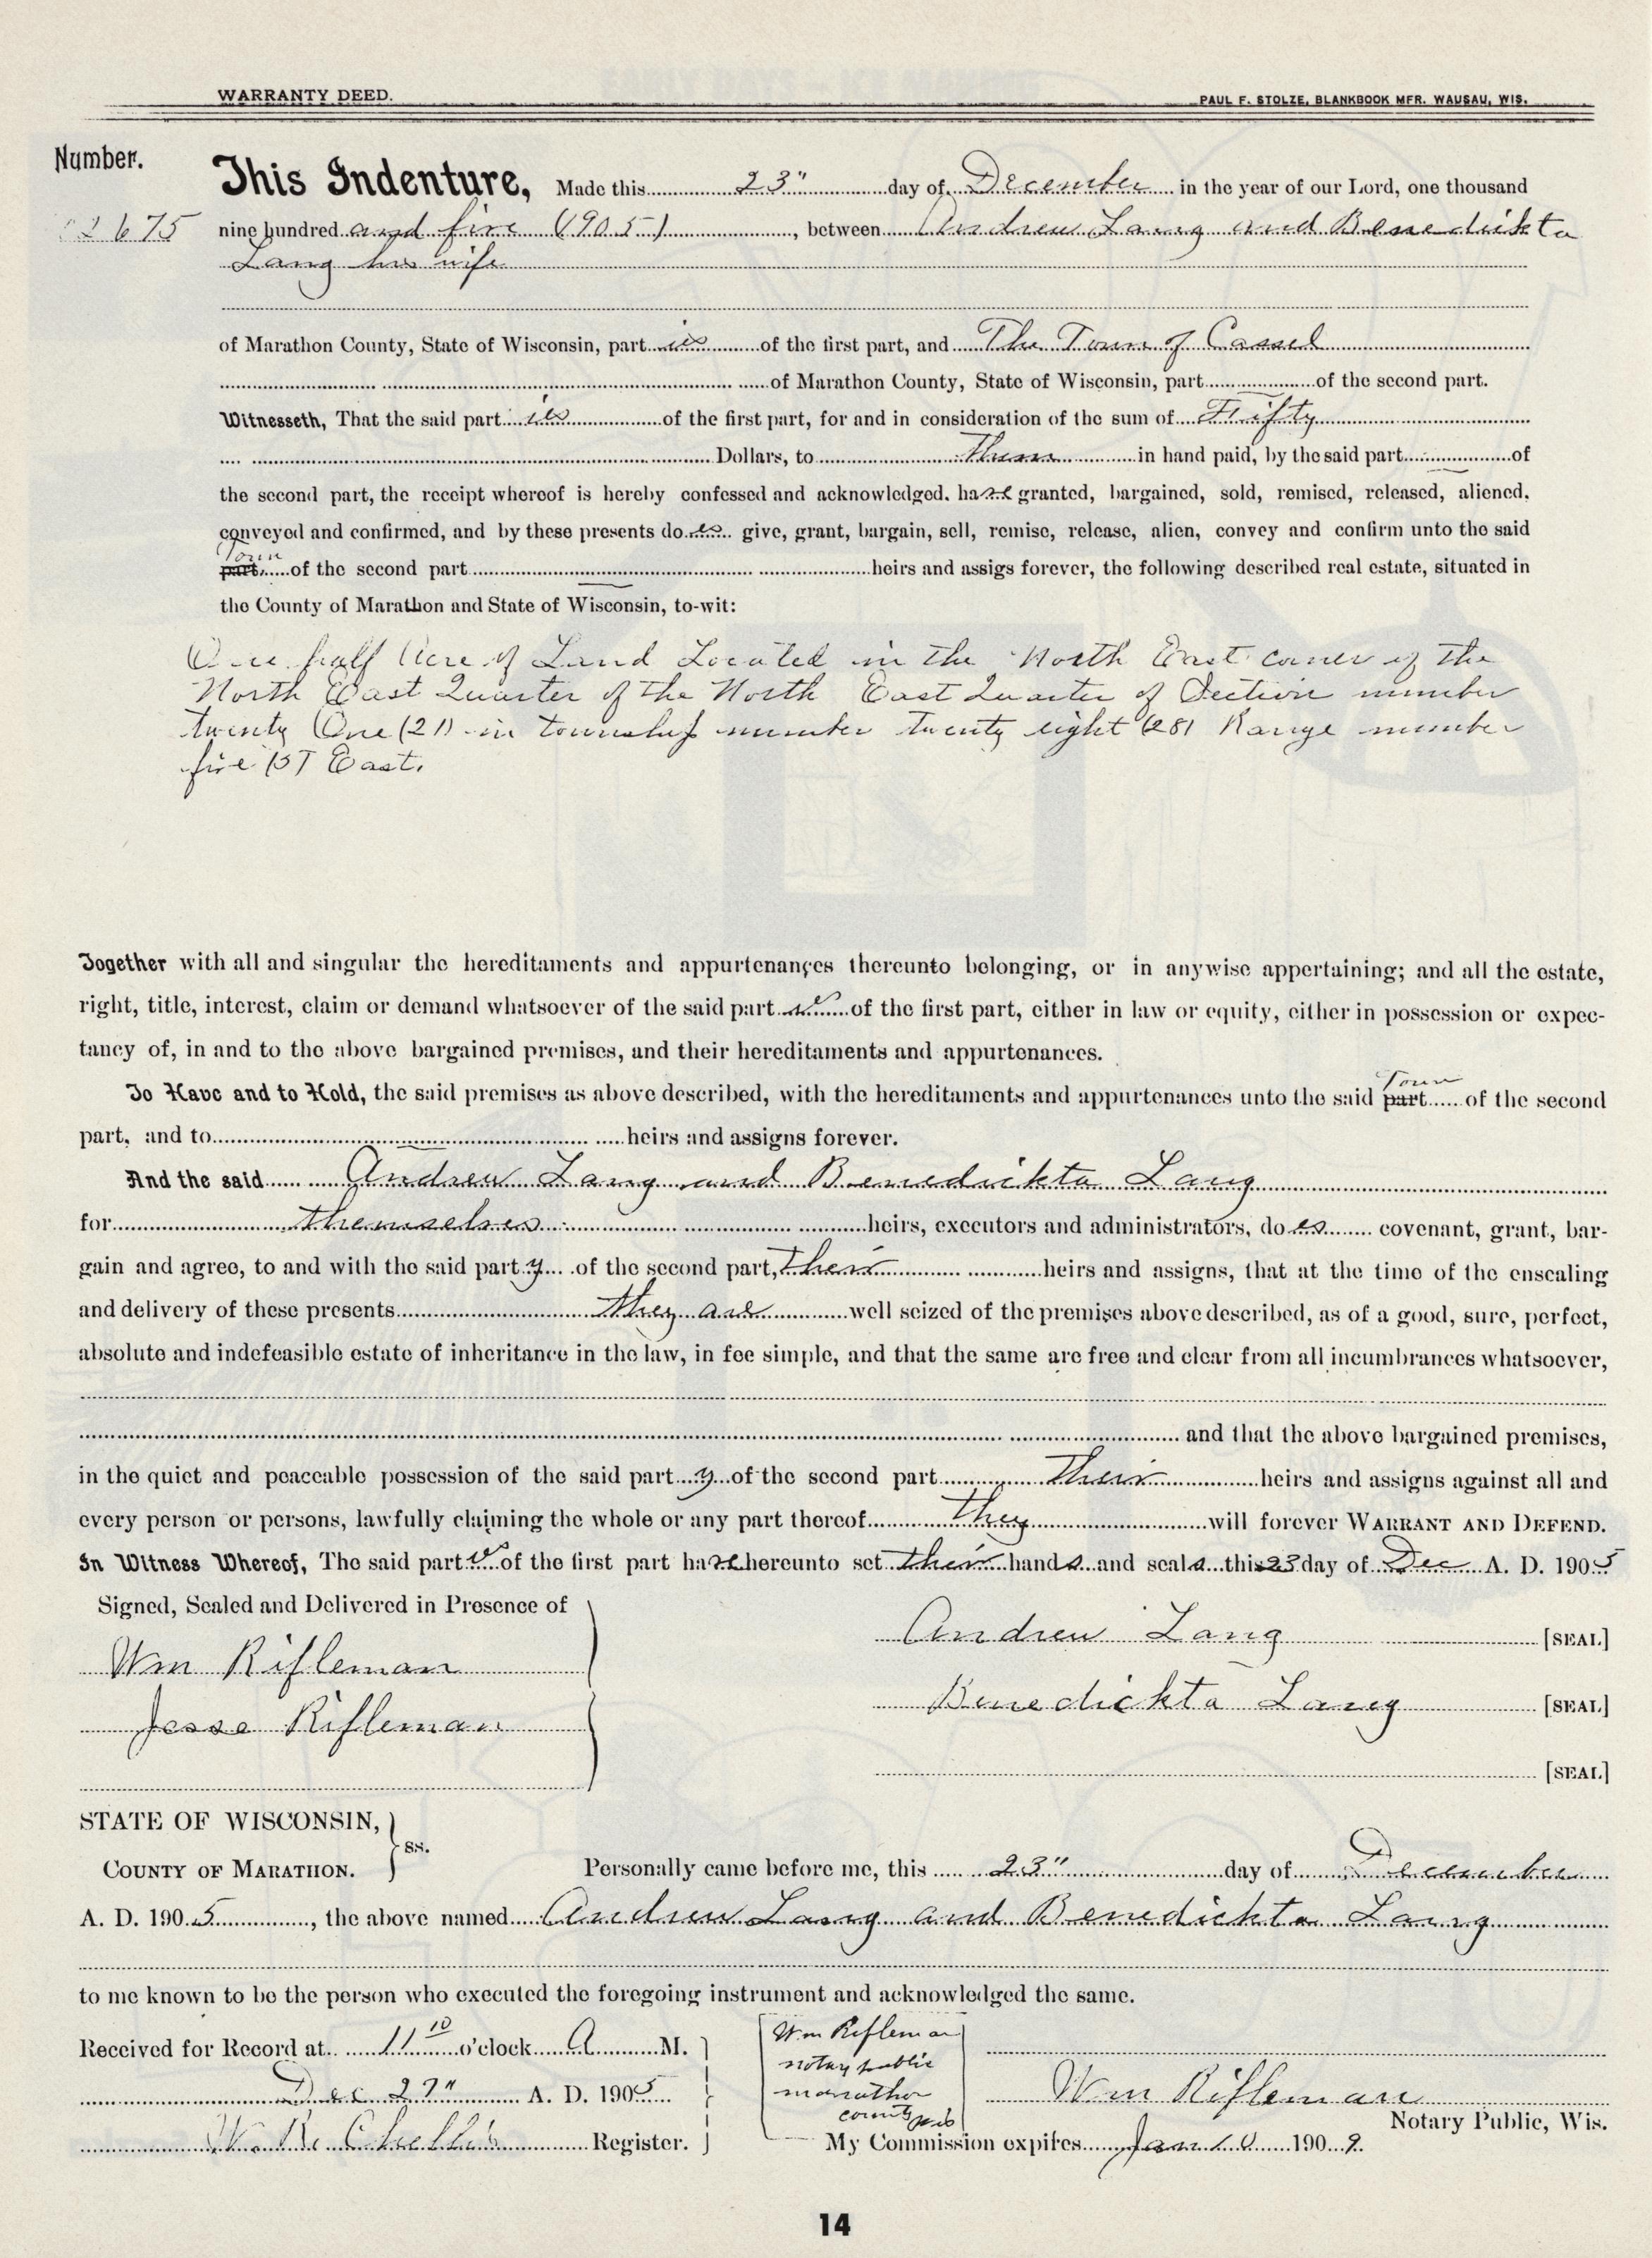 WARRANTY DEED. PAUL F. STOLZE, BLANKBOOK MFR. WAUSAU, WIS.
Number.
This Indenture, Made this 23" day of December in the year of our Lord, one thousand
2675 nine hundred and five (1905), between Andrew Lang and Benedickta
Lang his wife
of Marathon County, State of Wisconsin, part ies of the first part, and The Town of Cassel
of Marathon County, State of Wisconsin, part of the second part.
Witnesseth, That the said part ies of the first part, for and in consideration of the sum of Fifty
Dollars, to them in hand paid, by the said part of
the second part, the receipt whereof is hereby confessed and acknowledged. have granted, bargained, sold, remised, released, aliened,
conveyed and confirmed, and by these presents do es give, grant, bargain, sell, remise, release, alien, convey and confirm unto the said
Town
part. of the second part heirs and assigs forever, the following described real estate, situated in
the County of Marathon and State of Wisconsin, to-wit:
One half Acre of Land Located in the North East corner of the
North East Quarter of the North East Quarter of Section number
twenty One (21) in township number twenty eight (28) Range number
five (5) East.
Together with all and singular the hereditaments and appurtenances thereunto belonging, or in anywise appertaining; and all the estate,
right, title, interest, claim or demand whatsoever of the said part of the first part, either in law or equity, either in possession or expec-
tancy of, in and to the above bargained premises, and their hereditaments and appurtenances.
To Have and to Hold, the said premises as above described, with the hereditaments and appurtenances unto the said part of the second
Town
part, and to heirs and assigns forever.
And the said Andrew Lang and Benedickta Lang
for themselves heirs, executors and administrators, do es covenant, grant, bar-
gain and agree, to and with the said part y of the second part, their heirs and assigns, that at the time of the ensealing
and delivery of these presents they are well seized of the premises above described, as of a good, sure, perfect,
absolute and indefeasible estate of inheritance in the law, in fee simple, and that the same are free and clear from all incumbrances whatsoever,
and that the above bargained premises,
in the quiet and peaceable possession of the said part y of the second part their heirs and assigns against all and
every person or persons, lawfully claiming the whole or any part thereof they will forever WARRANT AND DEFEND.
In Witness Whereof, The said part of the first part have hereunto set their hands and seals this 23 day of Dec A. D. 1905
Signed, Sealed and Delivered in Presence of
Andrew Lang [SEAL]
Wm Rifleman
Benedickta Lang [SEAL]
Jesse Rifleman
[SEAL]
STATE OF WISCONSIN,
COUNTY OF MARATHON. ss. Personally came before me, this 23" day of December
A. D. 1905, the above named Andrew Lang and Benedickta Lang
to me known to be the person who executed the foregoing instrument and acknowledged the same.
Received for Record at 11 10 o'clock A M.
Dec 27" A. D. 1905
W. R. Chellis Register.
Wm Rifleman
notary public
marathon
county wis
Wm Rifleman
Notary Public, Wis.
My Commission expires Jan 10 1909.
14